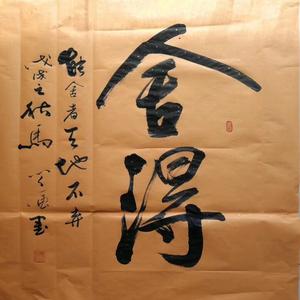 舍得
能舍者天地不弃
戊戌之秋馬